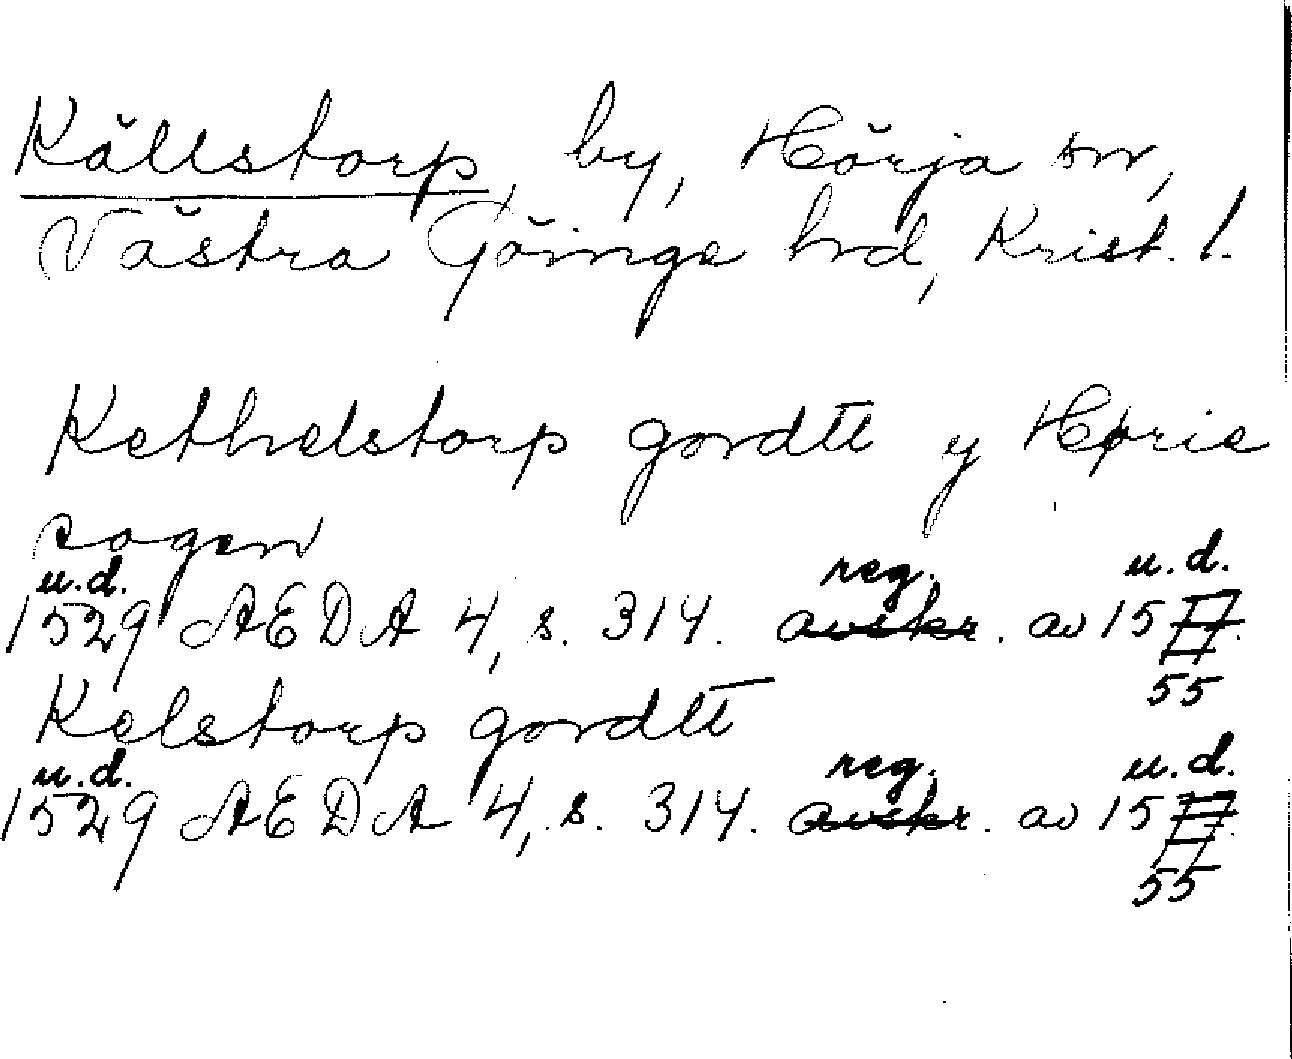 Källstorp, by, Hörja sn,
Västra Göinge hrd, Krist. l.
Kethelstorp gordtt y Hørie
sogen
u.d. reg. u.d.
1529 AEDA 4, s. 314. avskr. av 1577.
55
Kelstorp gordtt
u.d. reg. u.d.
1529 AEDA 4, s. 314. avskr. av 1577.
55